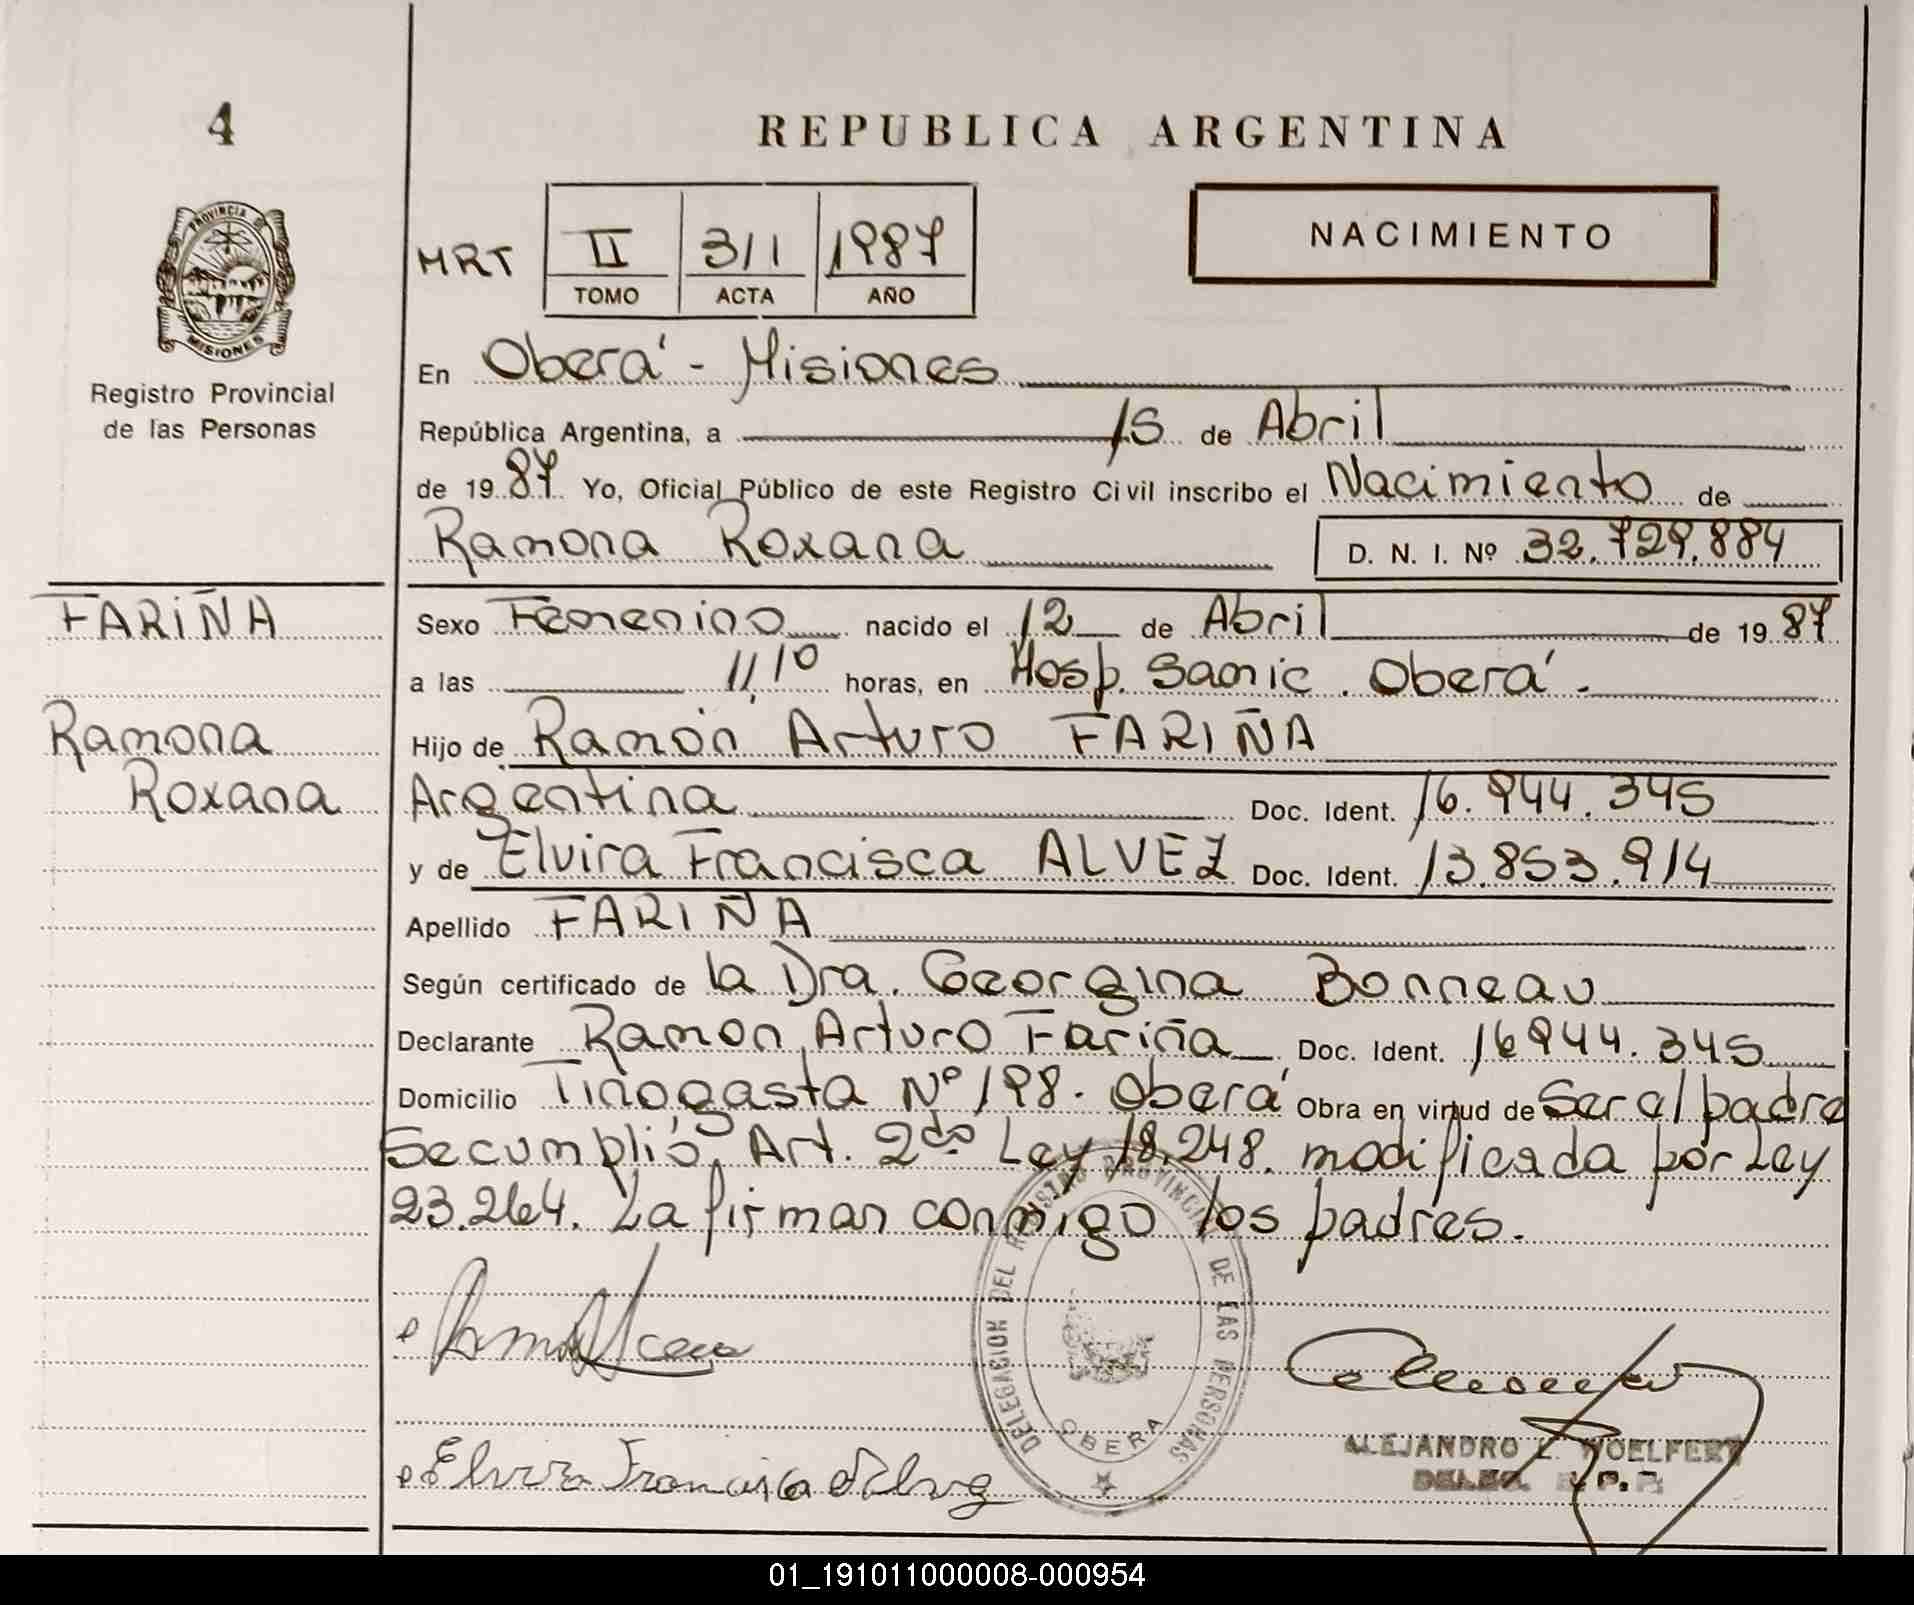 4
REPUBLICA ARGENTINA
PROVINCIA DE
MISIONES
Registro Provincial
de las Personas
MRT
II
311
1987
TOMO
ACTA
AÑO
NACIMIENTO
En Oberá - Misiones
República Argentina, a 15 de Abril
de 1987 Yo, Oficial Público de este Registro Civil inscribo el Nacimiento de
Ramona Roxana
D. N. I. Nº 32.729.884
FARIÑA
Ramona
Roxana
Sexo Femenino nacido el 12 de Abril de 1987
a las 11,10 horas, en Hosp. Samic. Oberá.
Hijo de Ramón Arturo FARIÑA
Argentina Doc. Ident. 16.944.345
y de Elvira Francisca ALVEZ Doc. Ident. 13.853.914
Apellido FARIÑA
Según certificado de la Dra. Georgina Bonneau
Declarante Ramon Arturo Fariña Doc. Ident. 16944.345
Domicilio Tinogasta Nº 198. Oberá Obra en virtud de Ser el padre
Se cumplió Art. 2do Ley 18.248. modificada por Ley
23.264. La firman conmigo los padres.
DELEGACION DEL REGISTRO PROVINCIAL DE LAS PERSONAS
OBERA
Elvira Francisca
ALEJANDRO L. WOELFERT
01_191011000008-000954